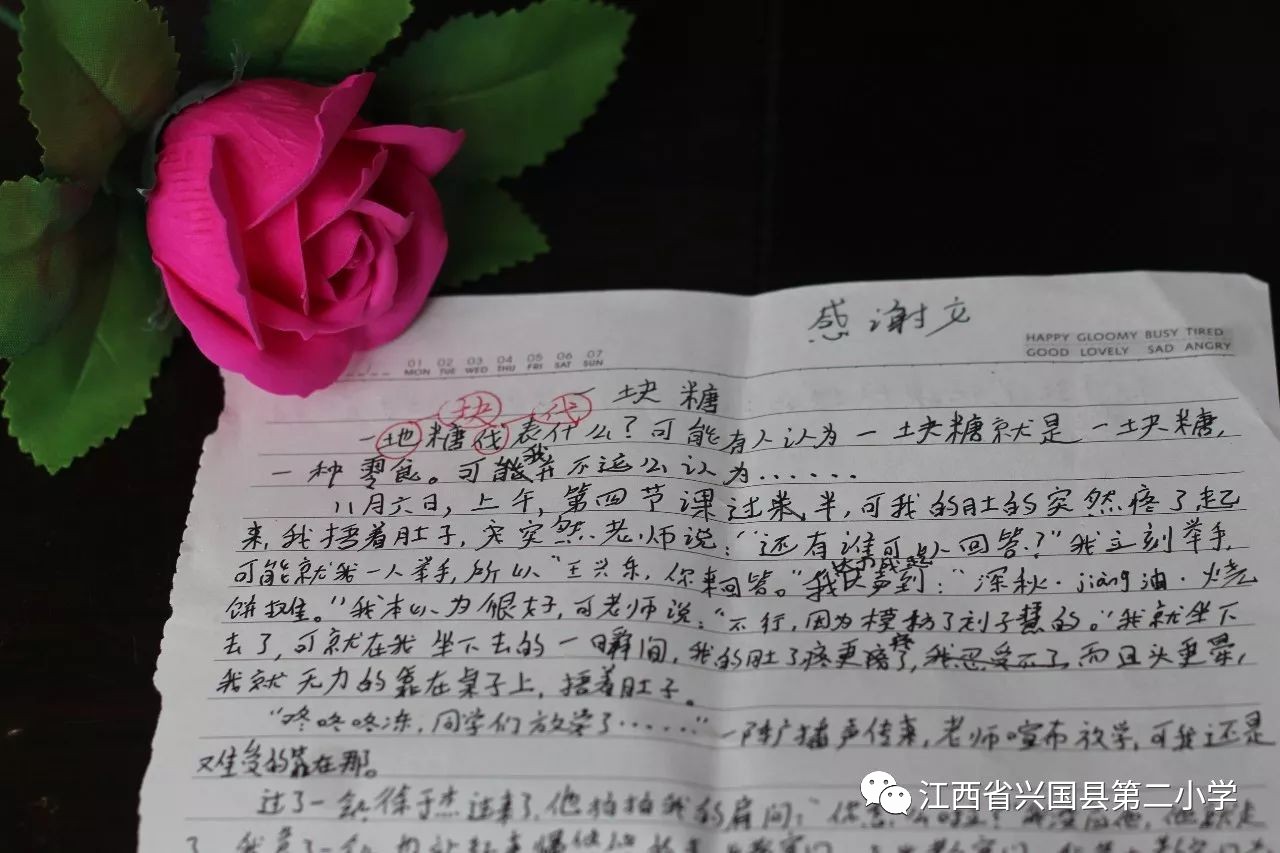 感谢文
HAPPY GLOOMY BUSY TIRED
GOOD LOVELY SAD ANGRY
01 02 03 04 05 06 07
MON TUE WED THU FRI SAT SUN
一块糖
块 代
一地糖伐表什么?可能有人认为一块糖就是一块糖,
一种零食。可能我并不这么认为......
11月六日,上午,第四节课过来半,可我的肚的突然疼了起
来,我捂着肚子,突突然老师说:“还有谁可以回答?”我立刻举手,
可能就我一人举手,所以“王兴东,你来回答。”我大声到:“深秋·jiang油·烧
饼挂。”我本以为很好,可老师说:“不行,因为模彷了刘子慧的。”我就坐下
去了,可就在我坐下去的一瞬间,我的肚了疼更疼了,我忍受不了,而且头更晕,
我就无力的靠在桌子上,捂着肚子。
“咚咚咚冻,同学们放学了......”一阵广播声传来,老师喧布放学,可我还是
难受的靠在那。
过了一会徐子杰过来了,他拍拍我的肩问:“你怎么啦?
江西省兴国县第二小学